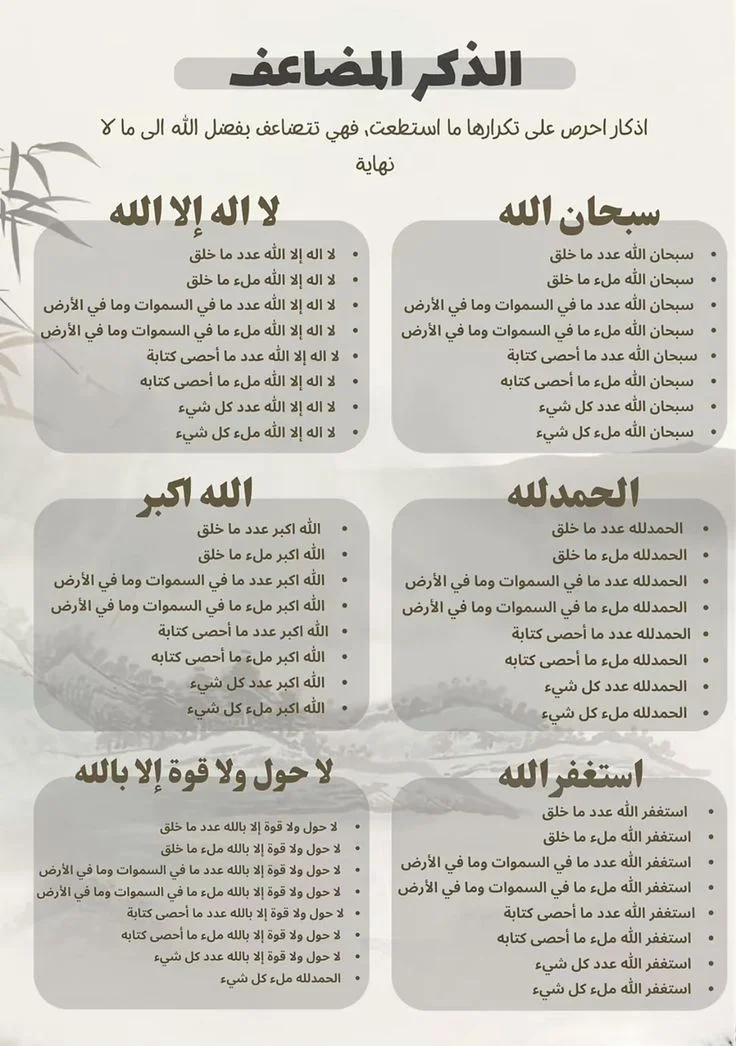 الذكر المضاعف
اذكار احرص على تكرارها ما استطعت, فهي تتضاعف بفضل الله الى ما لا
نهاية
سبحان الله
• سبحان الله عدد ما خلق
• سبحان الله ملء ما خلق
• سبحان الله عدد ما في السموات وما في الأرض
• سبحان الله ملء ما في السموات وما في الأرض
• سبحان الله عدد ما أحصى كتابة
• سبحان الله ملء ما أحصى كتابه
• سبحان الله عدد كل شيء
• سبحان الله ملء كل شيء
لا اله إلا الله
• لا اله إلا الله عدد ما خلق
• لا اله إلا الله ملء ما خلق
• لا اله إلا الله عدد ما في السموات وما في الأرض
• لا اله إلا الله ملء ما في السموات وما في الأرض
• لا اله إلا الله عدد ما أحصى كتابة
• لا اله إلا الله ملء ما أحصى كتابه
• لا اله إلا الله عدد كل شيء
• لا اله إلا الله ملء كل شيء
الحمدلله
• الحمدلله عدد ما خلق
• الحمدلله ملء ما خلق
• الحمدلله عدد ما في السموات وما في الأرض
• الحمدلله ملء ما في السموات وما في الأرض
• الحمدلله عدد ما أحصى كتابة
• الحمدلله ملء ما أحصى كتابه
• الحمدلله عدد كل شيء
• الحمدلله ملء كل شيء
الله اكبر
• الله اكبر عدد ما خلق
• الله اكبر ملء ما خلق
• الله اكبر عدد ما في السموات وما في الأرض
• الله اكبر ملء ما في السموات وما في الأرض
• الله اكبر عدد ما أحصى كتابة
• الله اكبر ملء ما أحصى كتابه
• الله اكبر عدد كل شيء
• الله اكبر ملء كل شيء
استغفر الله
• استغفر الله عدد ما خلق
• استغفر الله ملء ما خلق
• استغفر الله عدد ما في السموات وما في الأرض
• استغفر الله ملء ما في السموات وما في الأرض
• استغفر الله عدد ما أحصى كتابة
• استغفر الله ملء ما أحصى كتابه
• استغفر الله عدد كل شيء
• استغفر الله ملء كل شيء
لا حول ولا قوة إلا بالله
• لا حول ولا قوة إلا بالله عدد ما خلق
• لا حول ولا قوة إلا بالله ملء ما خلق
• لا حول ولا قوة إلا بالله عدد ما في السموات وما في الأرض
• لا حول ولا قوة إلا بالله ملء ما في السموات وما في الأرض
• لا حول ولا قوة إلا بالله عدد ما أحصى كتابة
• لا حول ولا قوة إلا بالله ملء ما أحصى كتابه
• لا حول ولا قوة إلا بالله عدد كل شيء
• الحمدلله ملء كل شيء